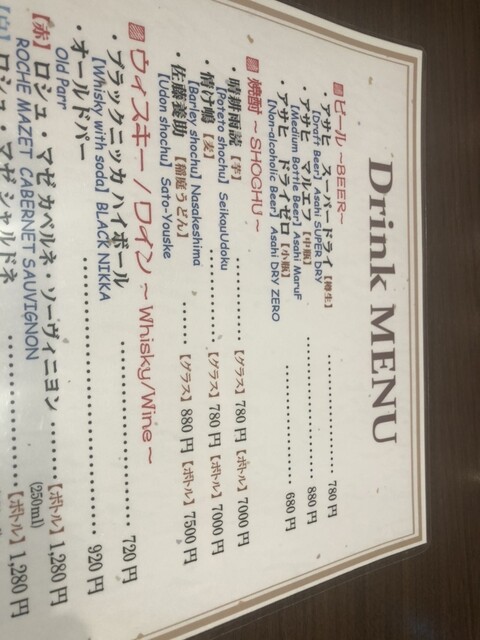 Drink MENU
ビール ~BEER~
・アサヒ スーパードライ【樽生】 ………… 780 円
[Draft Beer] Asahi SUPER DRY
・アサヒ マルエフ【中瓶】 ………… 880 円
[Medium Bottle Beer] Asahi MaruF
・アサヒ ドライゼロ【小瓶】 ………… 680 円
[Non-alcoholic Beer] Asahi DRY ZERO
焼酎 ~ SHOCHU ~
・晴耕雨読【芋】 ………… 【グラス】 780 円 【ボトル】 7000 円
[Poteto shochu] SeikouUdoku
・情け嶋【麦】 ………… 【グラス】 780 円 【ボトル】 7000 円
[Barley shochu] Nasakeshima
・佐藤養助【稲庭うどん】 …… 【グラス】 880 円 【ボトル】 7500 円
[Udon shochu] Sato-Youske
ウィスキー / ワイン ~ Whisky/Wine ~
・ブラックニッカ ハイボール ………… 720 円
[Whisky with soda] BLACK NIKKA
・オールドパー ………… 920 円
Old Parr
【赤】ロシュ・マゼ カベルネ・ソーヴィニヨン …… 【ボトル】 1,280 円
ROCHE MAZET CABERNET SAUVIGNON (250ml)
ロシュ・マゼ シャルドネ ………… 【ボトル】 1,280 円